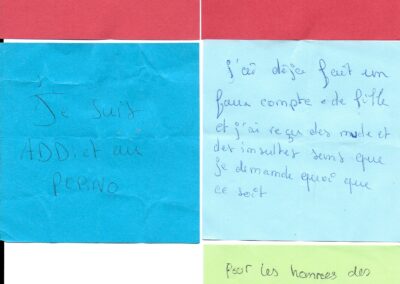 Je suis
ADDict au
PORNO
j'ai déja fait un
faux compte de fille
et j'ai reçus des nude et
des insultes sans que
je demande quoi que
ce soit
Pour les hommes des